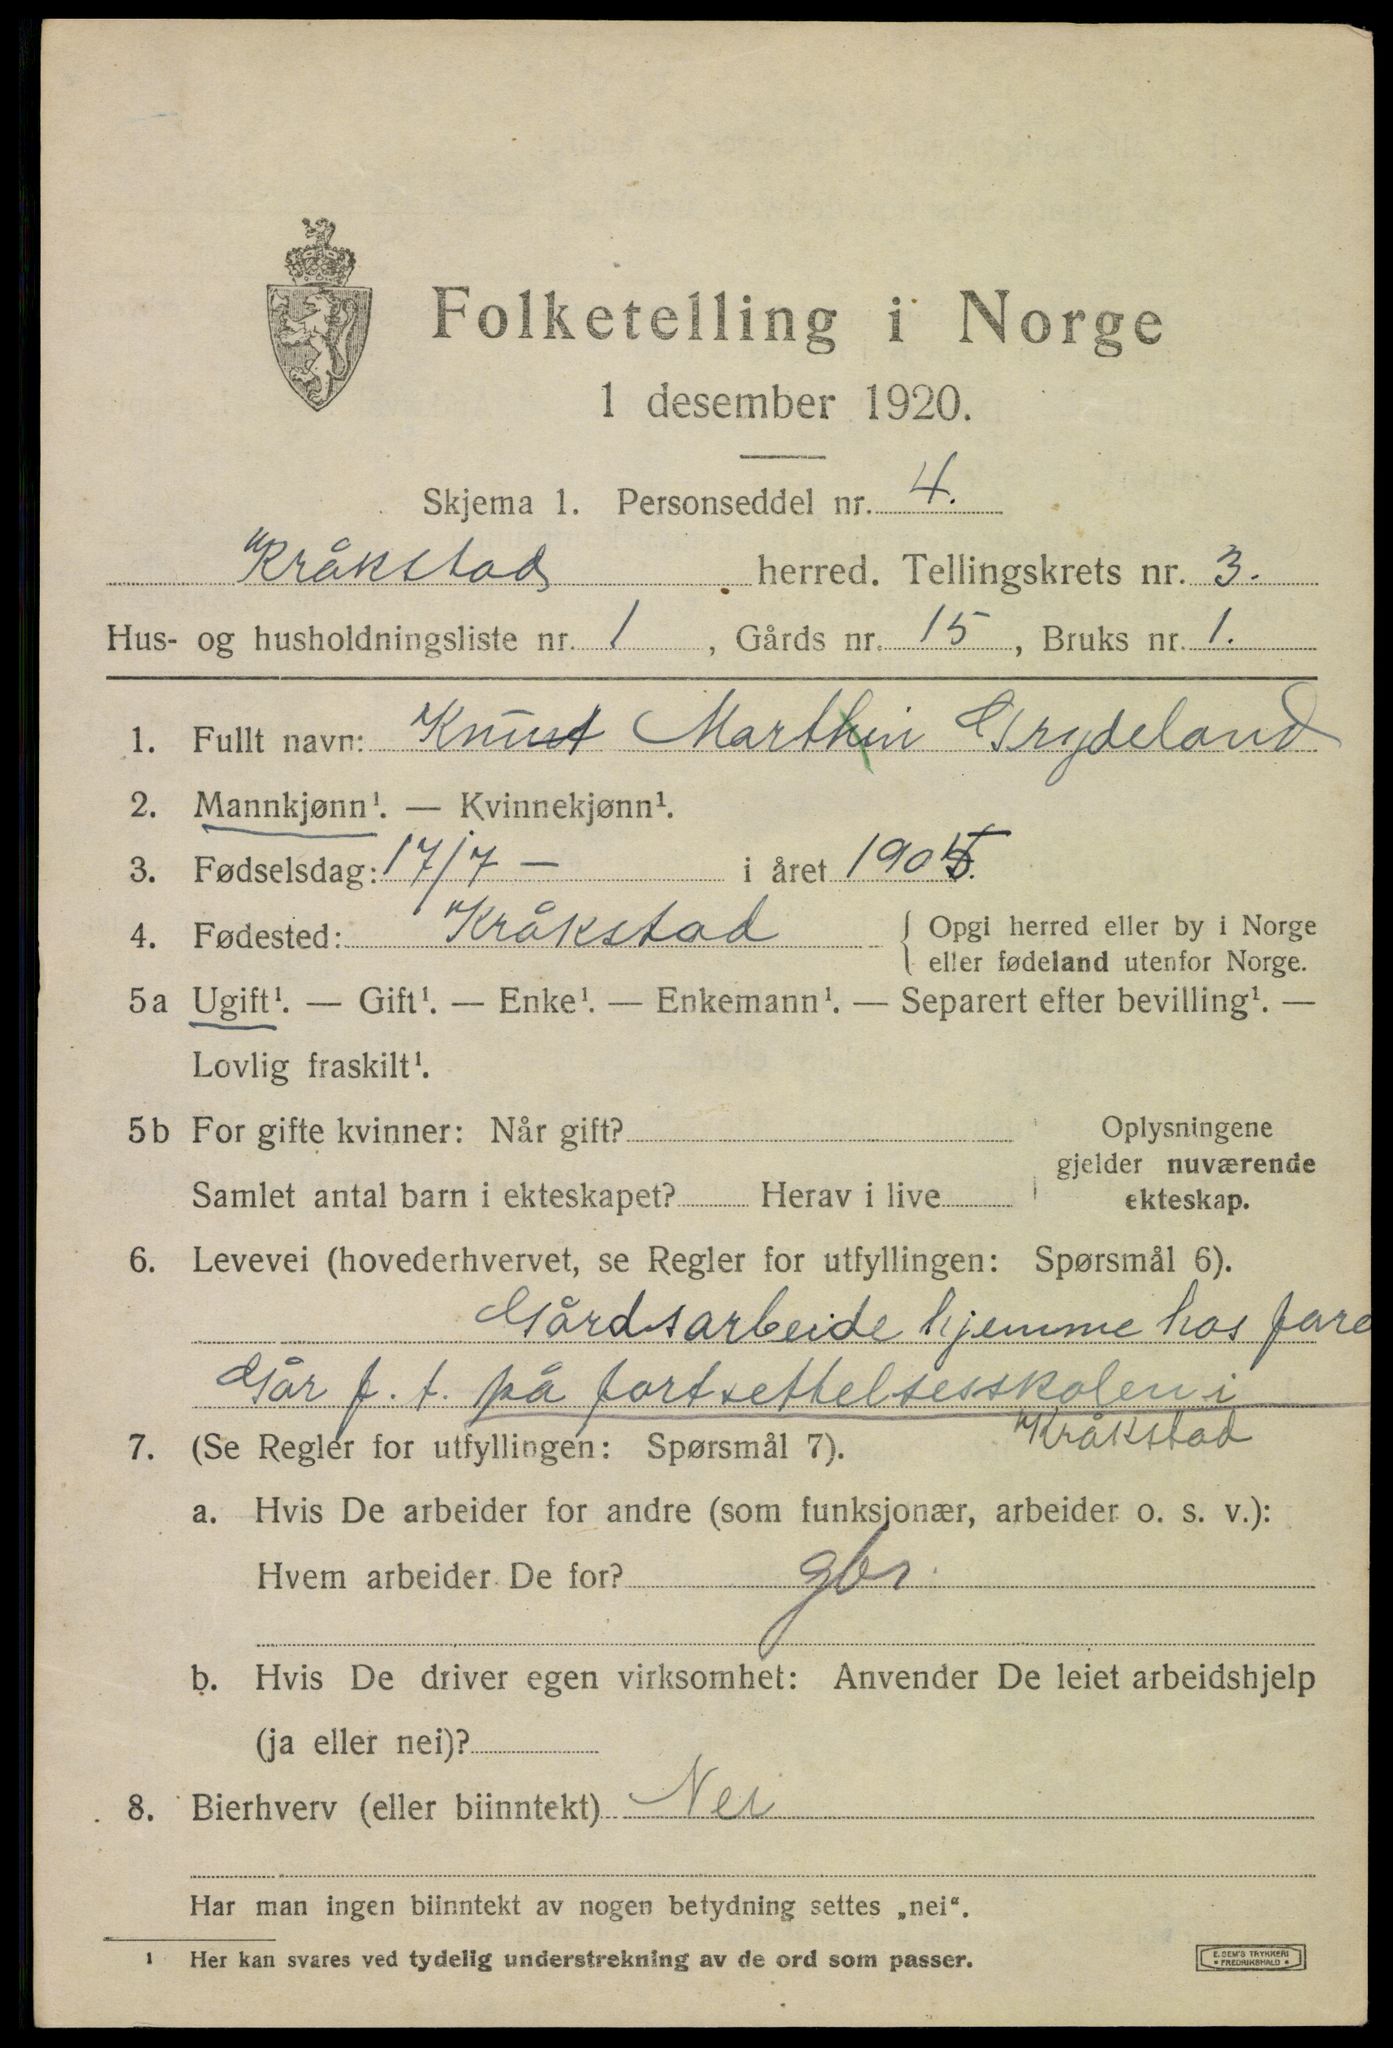 Folketelling i Norge
1 desember 1920.
Skjema 1. Personseddel nr. 4.
Kråkstad herred. Tellingskrets nr. 3.
Hus- og husholdningsliste nr. 1, Gårds nr. 15, Bruks nr. 1.
1. Fullt navn: Knut Marthin Grydeland
2. Mannkjønn¹. — Kvinnekjønn¹.
3. Fødselsdag: 17/7 — i året 1905.
4. Fødested: Kråkstad { Opgi herred eller by i Norge
eller fødeland utenfor Norge.
5a Ugift¹. — Gift¹. — Enke¹. — Enkemann¹. — Separert efter bevilling¹. —
Lovlig fraskilt¹.
5b For gifte kvinner: Når gift?
Samlet antal barn i ekteskapet? Herav i live
Oplysningene
gjelder nuværende
ekteskap.
6. Levevei (hovederhvervet, se Regler for utfyllingen: Spørsmål 6).
Gårdsarbeide hjemme hos fare
Går f. t. på fortsettelsesskolen i
Kråkstad
7. (Se Regler for utfyllingen: Spørsmål 7).
a. Hvis De arbeider for andre (som funksjonær, arbeider o. s. v.):
Hvem arbeider De for? gbr.
b. Hvis De driver egen virksomhet: Anvender De leiet arbeidshjelp
(ja eller nei)?
8. Bierhverv (eller biinntekt) Nei
Har man ingen biinntekt av nogen betydning settes „nei“.
¹ Her kan svares ved tydelig understrekning av de ord som passer.
E. SEM'S TRYKKERI
• FREDRIKSHALD •